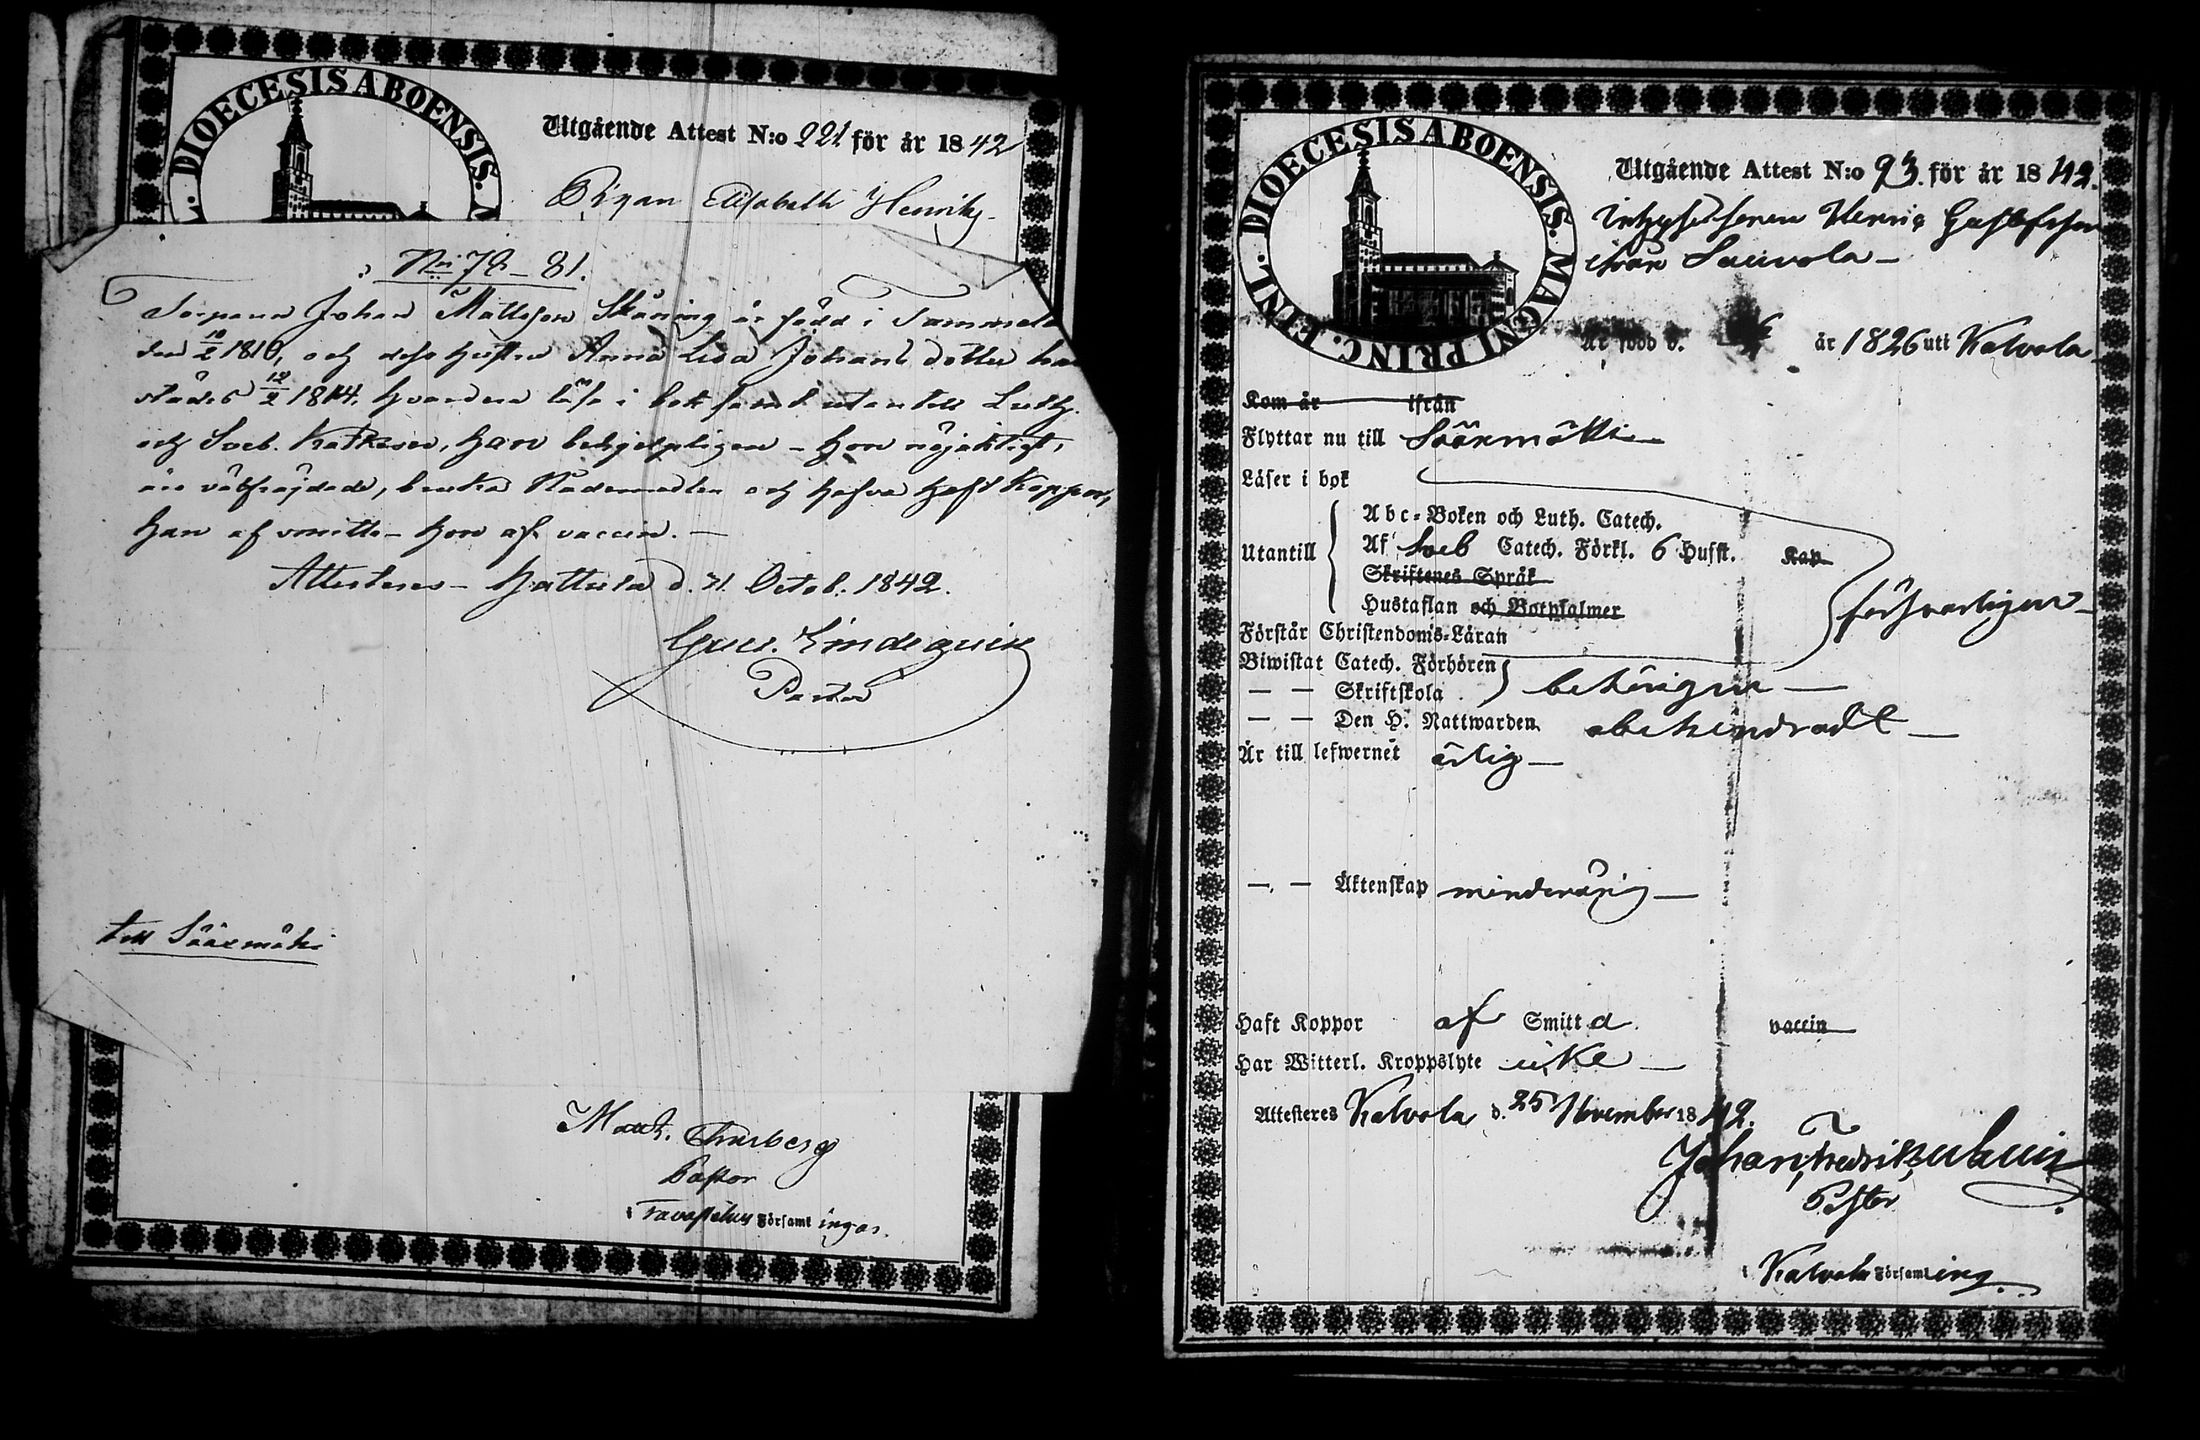 DIOECESIS ABOENSIS. M
Utgående Attest N:o 221 för år 1842
Pigan Elisabeth Henriks-
N:ri 78-81.
Torparen Johan Mattsson Skåning är född i Tammela
den 10/2 1810, och dess hustru Anna Lisa Johans dotter här
städes 12/2 1814, hvardera läsa i bok samt utantill Luth.
och Sveb. Katkeser, han behjelpligen - hon nöjaktigt,
äro välfräjdade, bruka Nådemedlen och hafva haft koppor,
han af smitta - hon af vaccin. -
Attesteres - Hattula d. 31 Octob. 1842.
Gust. Lindequist
Pastor
till Sääxmäki
Pastor
i Tavastehus Församlingar.
DIOECESIS ABOENSIS. MAGNI PRINC. FINL.
Utgående Attest N:o 93. för år 1842.
Inhysessonen Henric Gustafsson
ifrån Sauvola -
Är född d. år 1826 uti Kalvola
Kom år ifrån
Flyttar nu till Sääxmäki
Läser i bok
Utantill
Abc-Boken och Luth. Catech.
Af Sveb Catech. Förkl. 6 Hufst. Kap
Skriftenes Språk
Hustaflan och Botpsalmer
försvarligen -
Förstår Christendoms-Läran
Biwistat Catech. Förhören
— — Skriftskola behörigen -
— — Den H. Nattwarden obehindradt -
Är till lefwernet ärlig -
—. — Äktenskap minderårig -
Haft Koppor af Smitta vaccin
Har Witterl. Kroppslyte icke -
Attesteres Kalvola d. 25 November 1842.
Pastor
i Kalvola Församling.